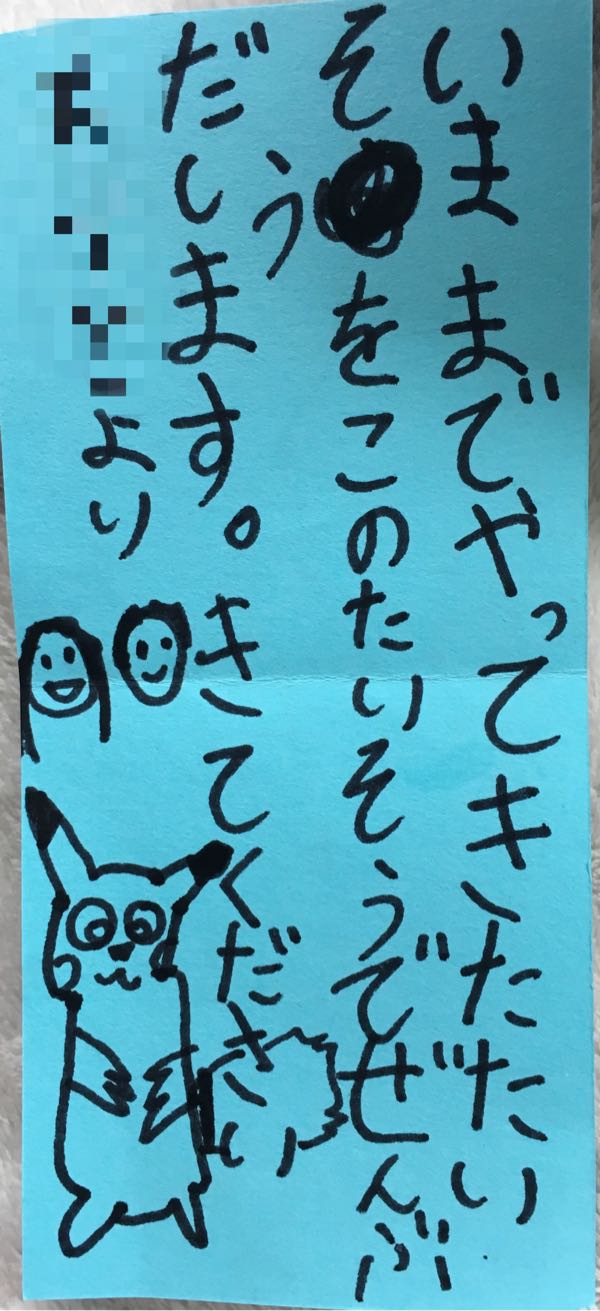 いままでやってきたたい
そうをこのたいそうでぜんぶ
だします。きてください
より